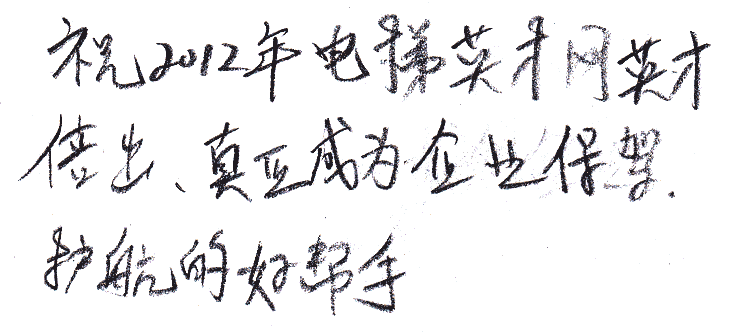 祝2012年电梯英才网英才
倍出、真正成为企业保驾.
护航的好帮手